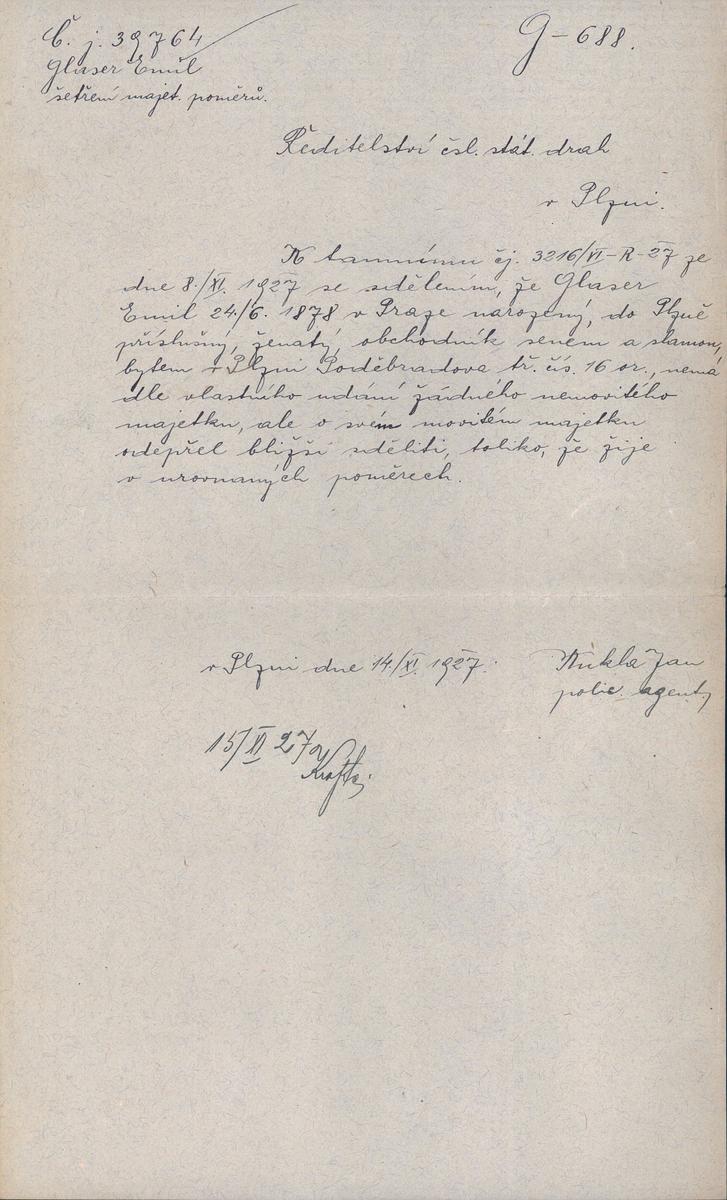 Č. j. 39764
G-688.
Glaser Emil
šetření majet. poměrů.
Ředitelství čsl. stát. drah
v Plzni.
K tamnímu čj. 3216/VI-R-27 ze
dne 8./XI. 1927 se sdělením, že Glaser
Emil 24./6. 1878 v Praze narozený, do Plzně
příslušný, ženatý, obchodník senem a slamou,
bytem v Plzni Poděbradova tř. čís. 16 or., nemá
dle vlastního udání žádného nemovitého
majetku, ale o svém movitém majetku
odepřel bližší sděliti, toliko, že žije
v urovnaných poměrech.
v Plzni dne 14./XI. 1927.
Kukla Jan
polic. agent,
15/XI 27